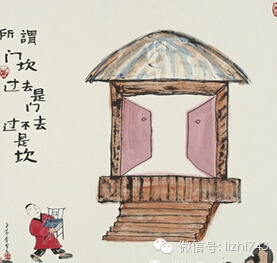 所謂
门坎
过去是
门
过不去
是
坎
微信号: lizhi743